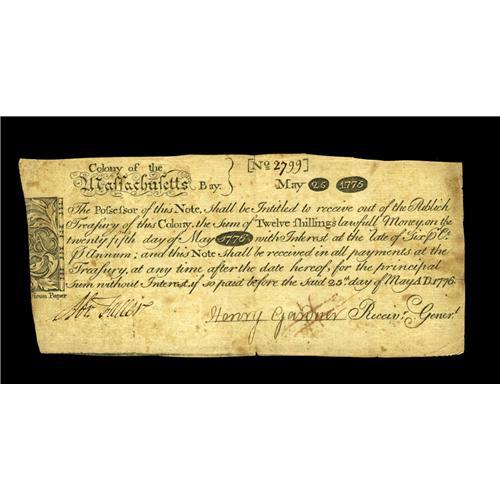 Colony of the
Maſſachuſetts Bay. } [No 2799]
May 25 1775
The Poſseſsor of this Note, Shall be Intitled to receive out of the Publick
Treaſury of this Colony, the Sum of Twelve Shillings lawfull Money, on the
twenty fifth day of May 1776 with Interest at the rate of Six ꝑ Ct.
ꝑ Annum; and this Note Shall be received in all payments at the
Treaſury, at any time after the date hereof, for the principal
Sum without Interest, if so paid before the Said 25th. day of May AD.1776.
Henry Gardner Receivr. Generl.